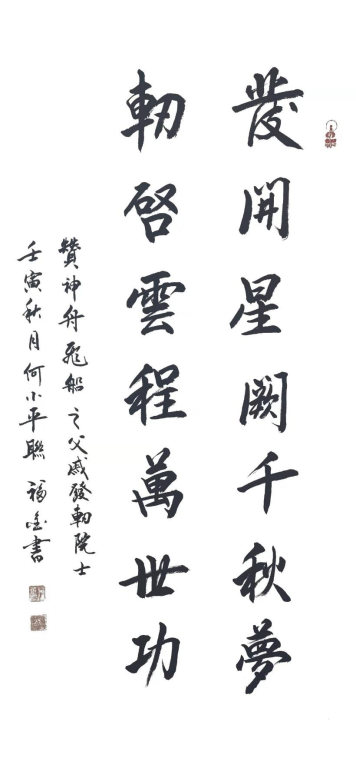 發開星闕千秋夢
軔啓雲程萬世功
贊神舟飛船之父戚發軔院士
壬寅秋月何小平聯 福金書